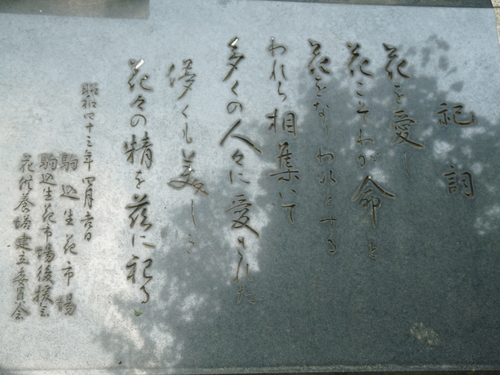 祀詞
花を愛し
花こそわが命と
花をなりわいとする
われら相集いて
多くの人々に愛された
儚くも美しき
花々の精を茲に祀る
昭和四十三年四月六日
駒込生花市場
駒込生花市場後援会
花供養塔建立委員会